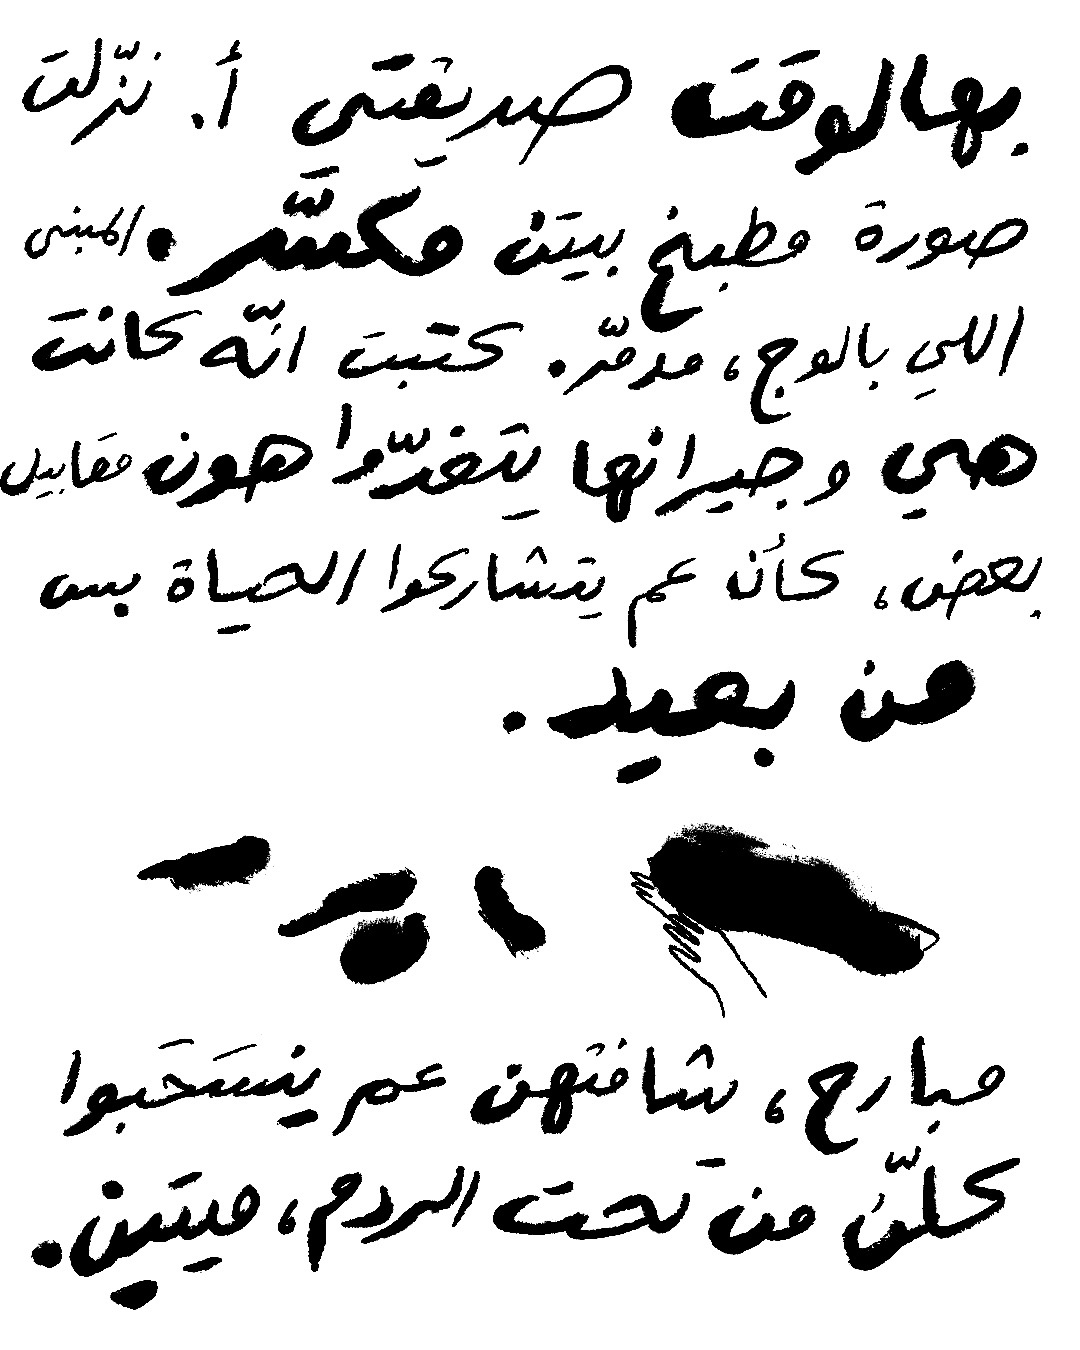 بهالوقت صديقتي أ. نزّلت
صورة مطبخ بيتن مكسّر. المبنى
اللي بالوج، مدمّر. كتبت انّه كانت
هي و جيرانها يتغدّوا هون مقابيل
بعض، كأن عم يتشاركوا الحياة بس
من بعيد.
مبارح، شافتهن عم ينسَحَبوا
كلّن من تحت الردم، ميتين.